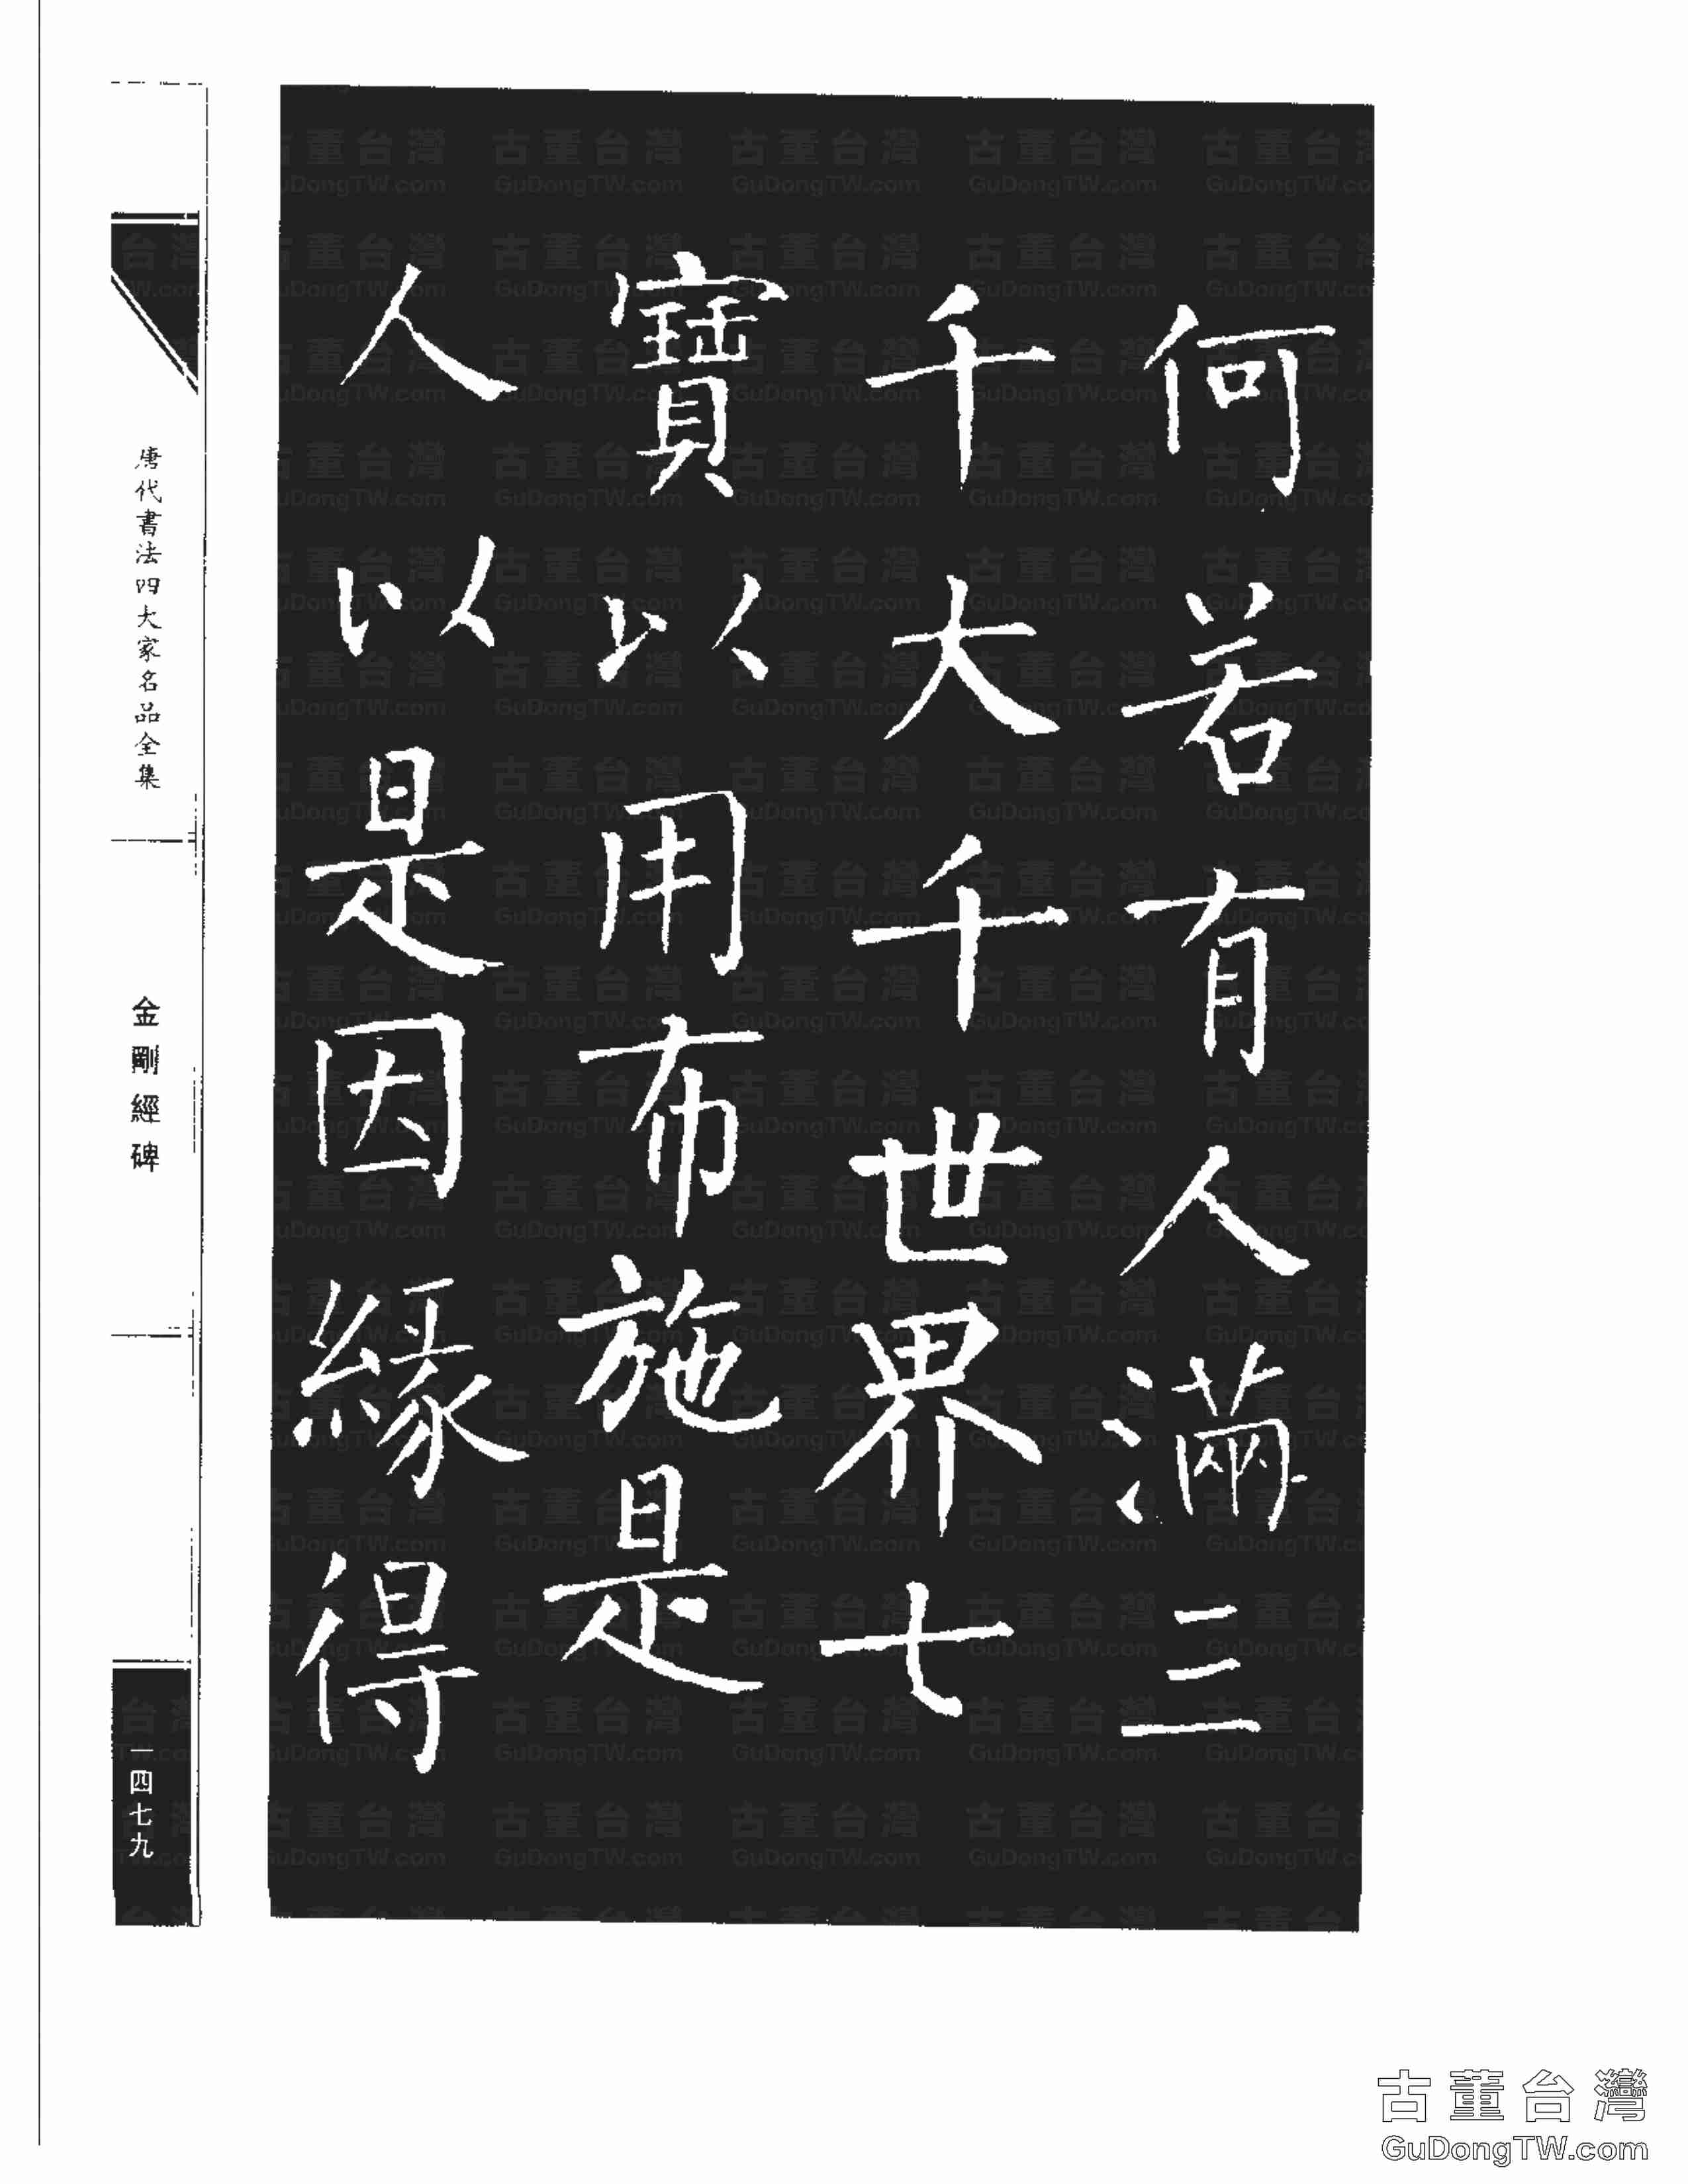 何若有人滿三
千大千世界七
寶以用布施是
人以是因緣得
唐代書法四大家名品全集
金剛經碑
一四七九
古董台灣
GuDongTW.com